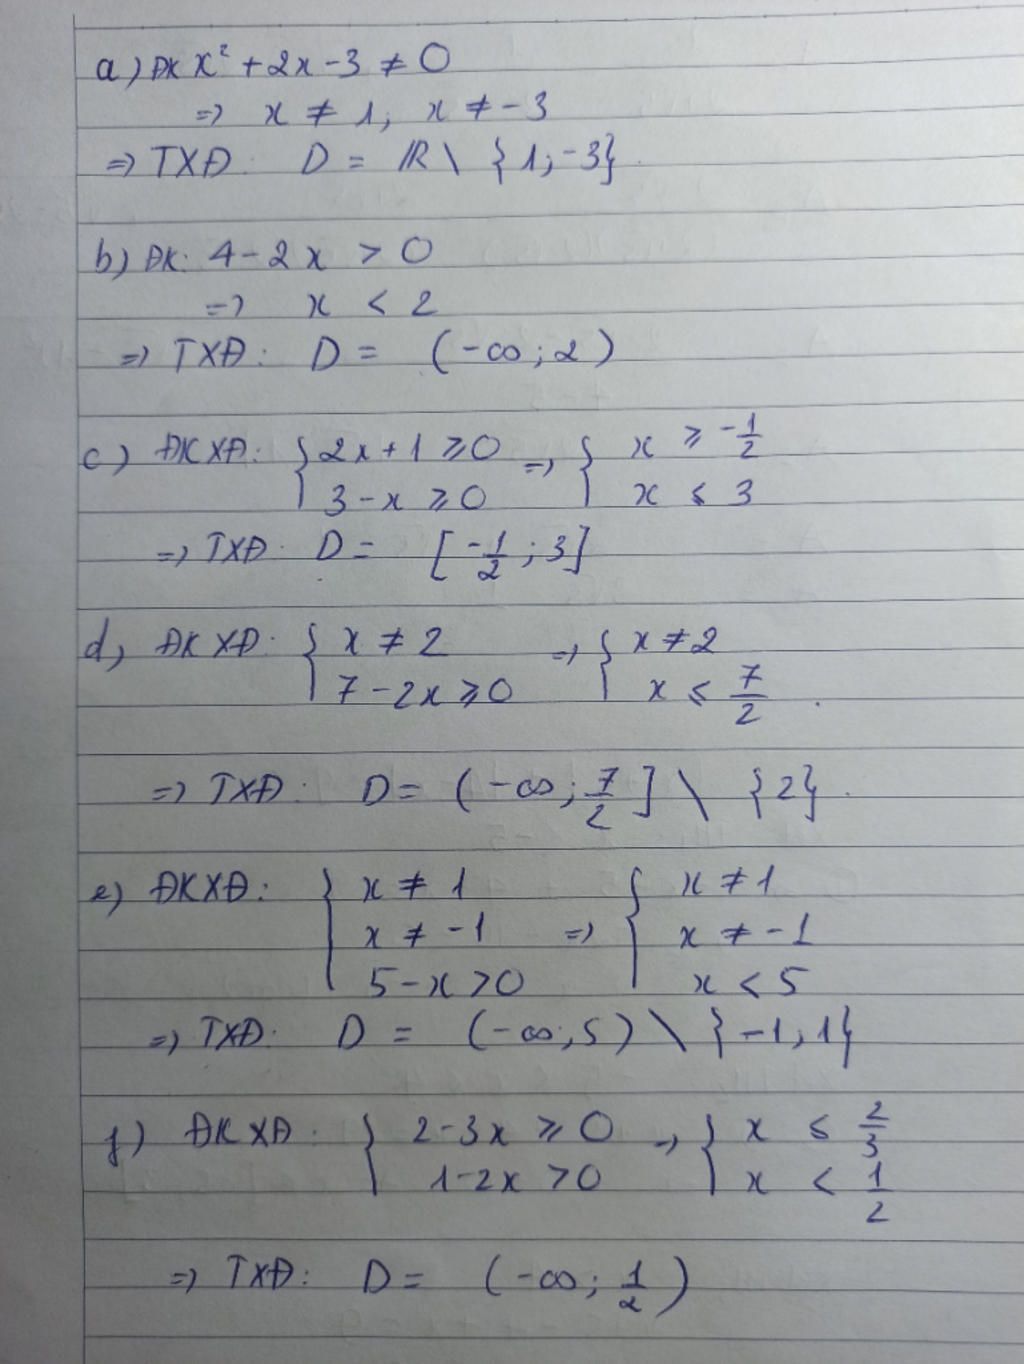 a) ĐK x² + 2x - 3 ≠ 0
=> x ≠ 1; x ≠ -3
=> TXĐ: D = ℝ \ {1; -3}.
b) ĐK: 4 - 2x > 0
=> x < 2
=> TXĐ: D = (-∞; 2)
c) ĐKXĐ: { 2x + 1 ≥ 0 => { x ≥ -1/2
3 - x ≥ 0 x ≤ 3
=> TXĐ: D = [-1/2; 3]
d) ĐKXĐ: { x ≠ 2 => { x ≠ 2
7 - 2x ≥ 0 x ≤ 7/2.
=> TXĐ: D = (-∞; 7/2] \ {2}.
e) ĐKXĐ: { x ≠ 1 { x ≠ 1
x ≠ -1 => x ≠ -1
5 - x > 0 x < 5
=> TXĐ: D = (-∞; 5) \ {-1, 1}
f) ĐKXĐ: { 2 - 3x ≥ 0 => { x ≤ 2/3
1 - 2x > 0 x < 1/2
=> TXĐ: D = (-∞; 1/2)